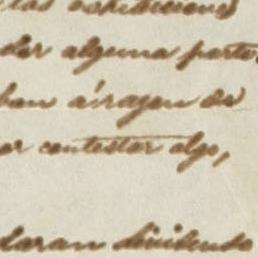 las expediciones
der alguna parte
ban airagen de
or contestar algo,
laran diciendo